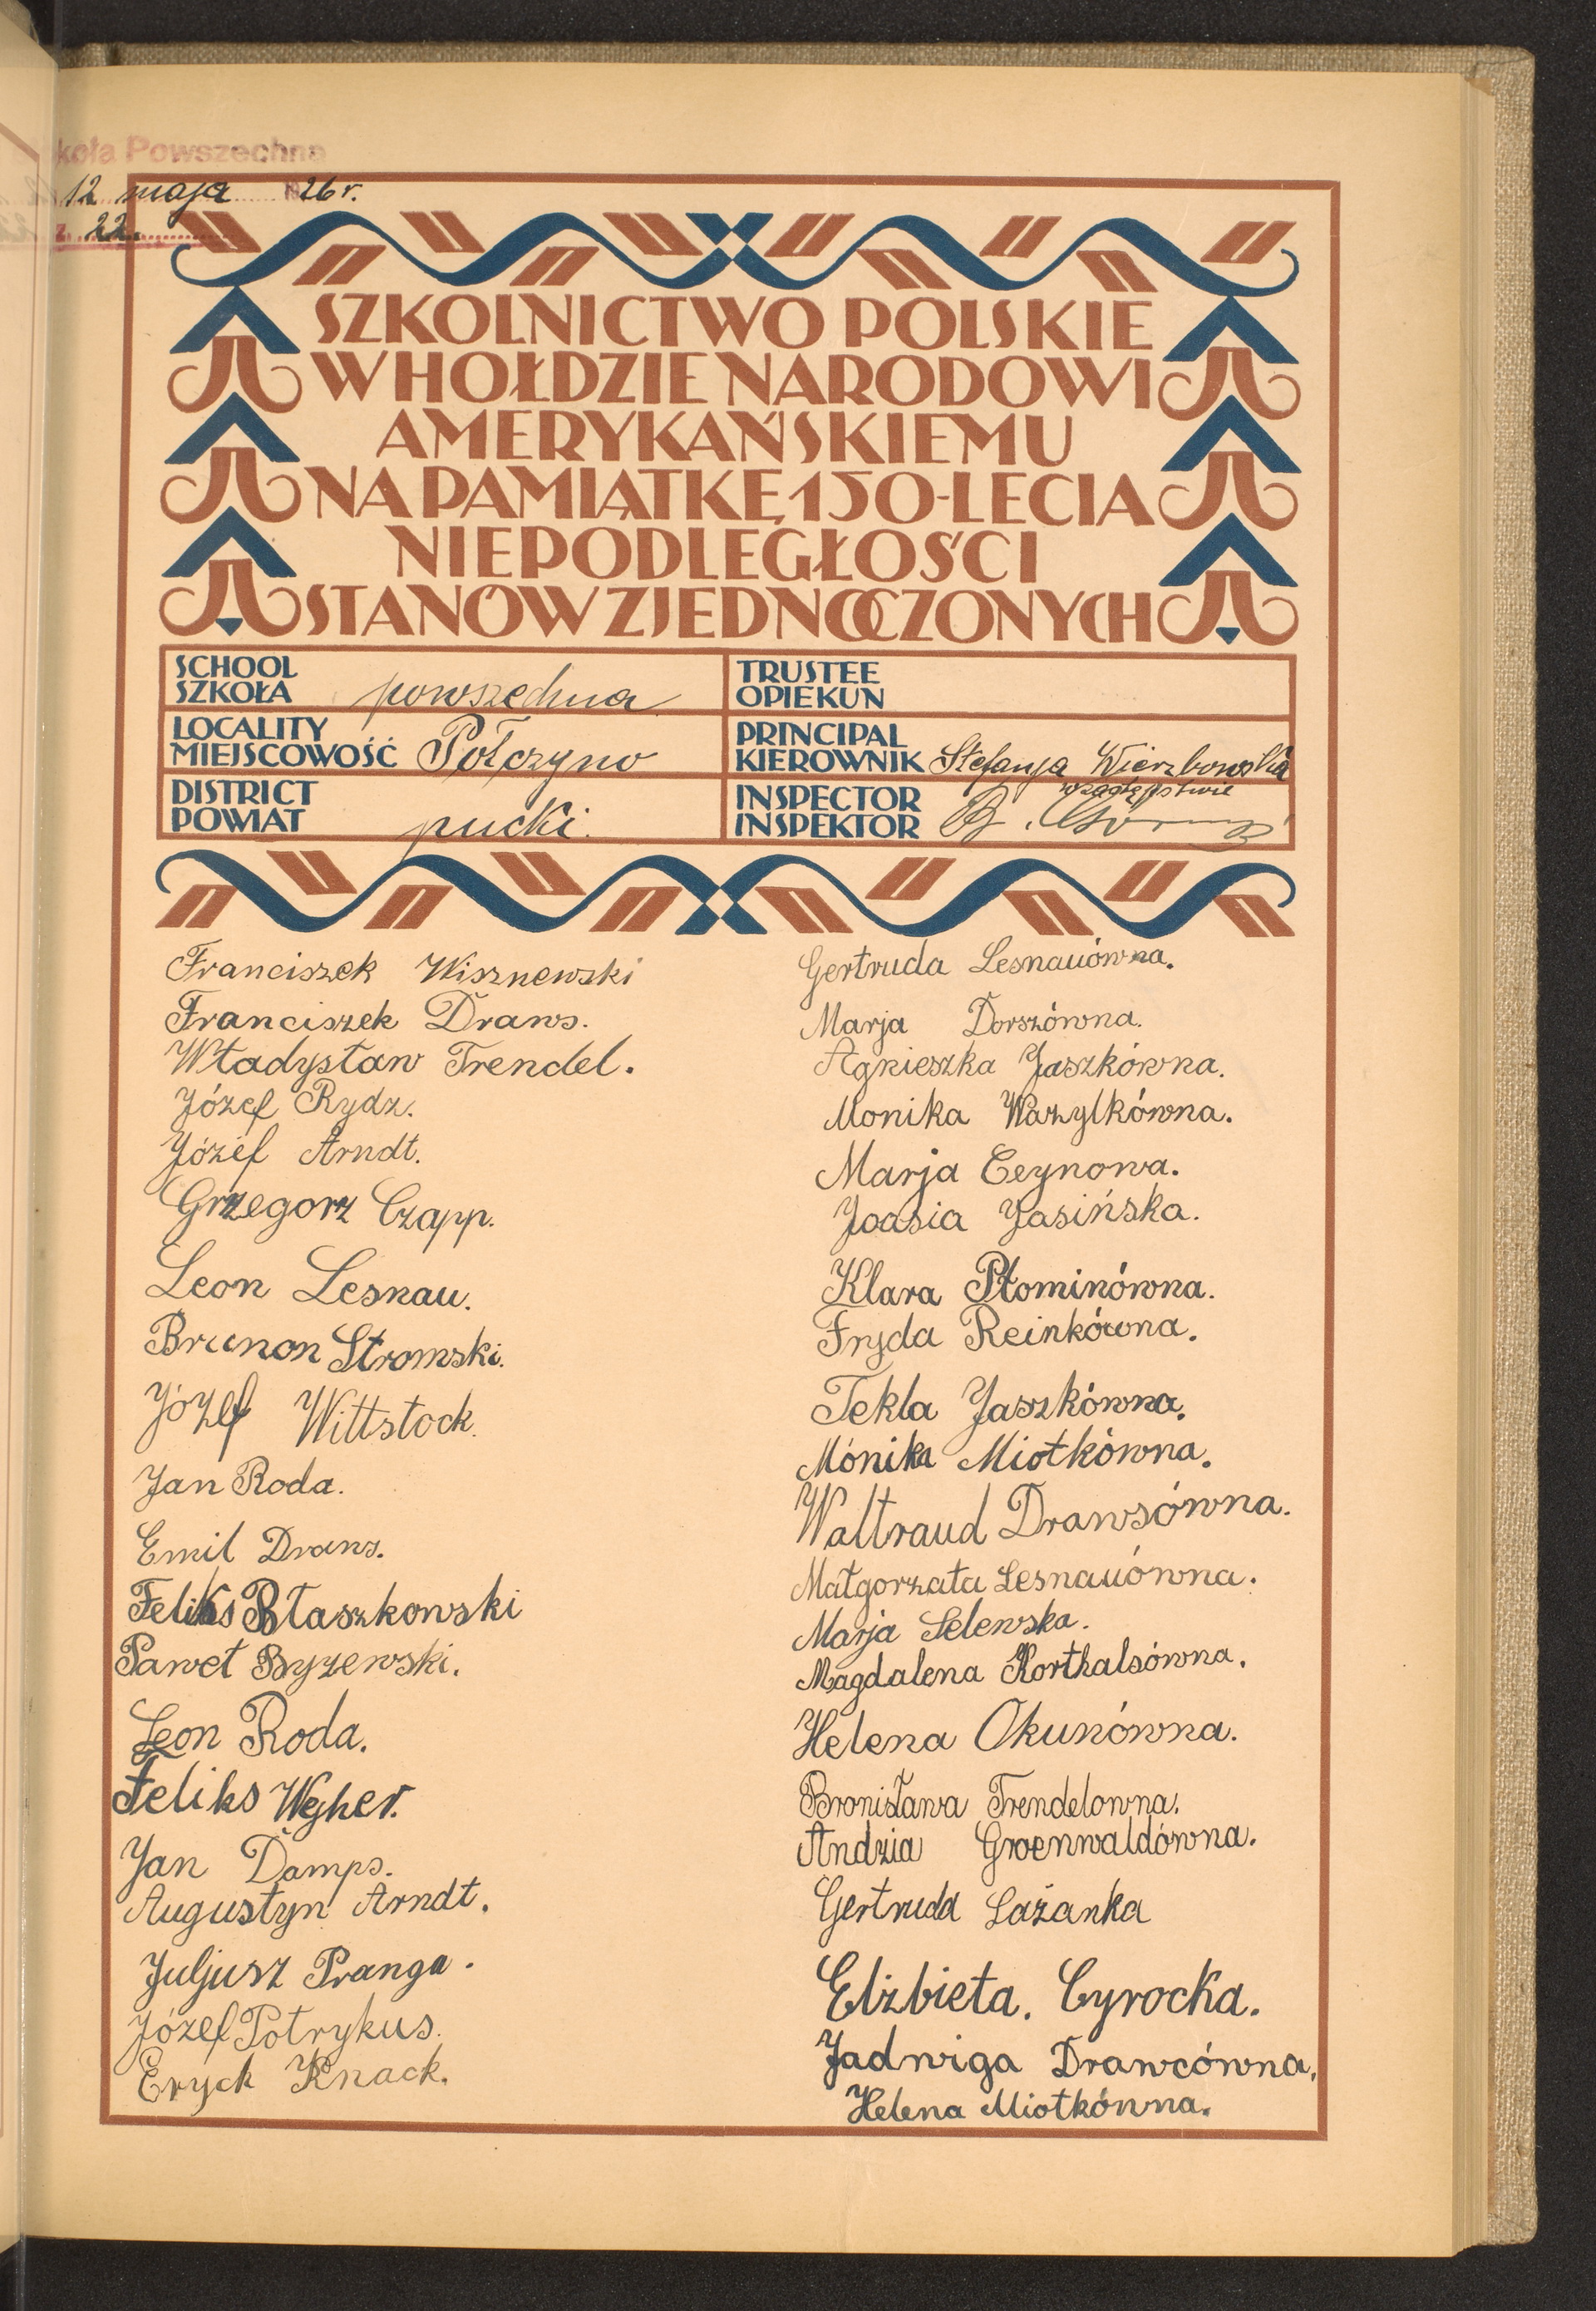 koła Powszechna
12 maja 1926 r.
z. 22.
SZKOLNICTWO POLSKIE
W HOŁDZIE NARODOWI
AMERYKAŃSKIEMU
NA PAMIĄTKĘ 150-LECIA
NIEPODLEGŁOŚCI
STANÓW ZJEDNOCZONYCH
SCHOOL
SZKOŁA powszechna
TRUSTEE
OPIEKUN
LOCALITY
MIEJSCOWOŚĆ Połczyno
PRINCIPAL
KIEROWNIK Stefanja Wierzbowska
DISTRICT
POWIAT pucki.
INSPECTOR w zastępstwie
INSPEKTOR B.
Franciszek Wisznewski
Franciszek Draws.
Władysław Trendel.
Józef Rydz.
Józef Arndt.
Grzegorz Czapp.
Leon Lesnau.
Brunon Stromski.
Józef Wittstock.
Jan Roda.
Emil Draws.
Feliks Błaszkowski
Paweł Byzewski.
Leon Roda.
Feliks Wejher.
Jan Damps.
Augustyn Arndt.
Juljusz Pranga.
Józef Potrykus.
Eryck Knack.
Gertruda Lesnauówna.
Marja Dorszówna.
Agnieszka Jaszkówna.
Monika Wazylkówna.
Marja Ceynowa.
Joasia Jasińska.
Klara Płominówna.
Fryda Reinkówna.
Tekla Jaszkówna.
Mónika Miotkówna.
Waltraud Drawsówna.
Małgorzata Lesnauówna.
Marja Selewska.
Magdalena Korthalsówna.
Helena Okunówna.
Bronisława Trendelowna.
Andzia Groenwaldówna.
Gertruda Lażanka
Elżbieta. Cyrocka.
Jadwiga Drawcówna.
Helena Miotkówna.